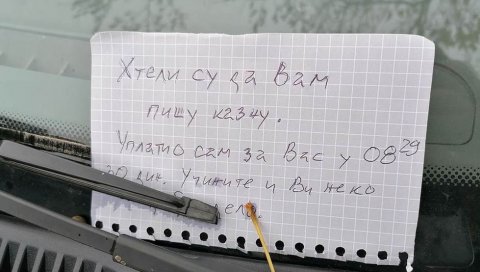 Хтели су да Вам
пишу казну.
Уплатио сам за Вас у 08²⁹
30 дин. Учините и Ви неко
дело.